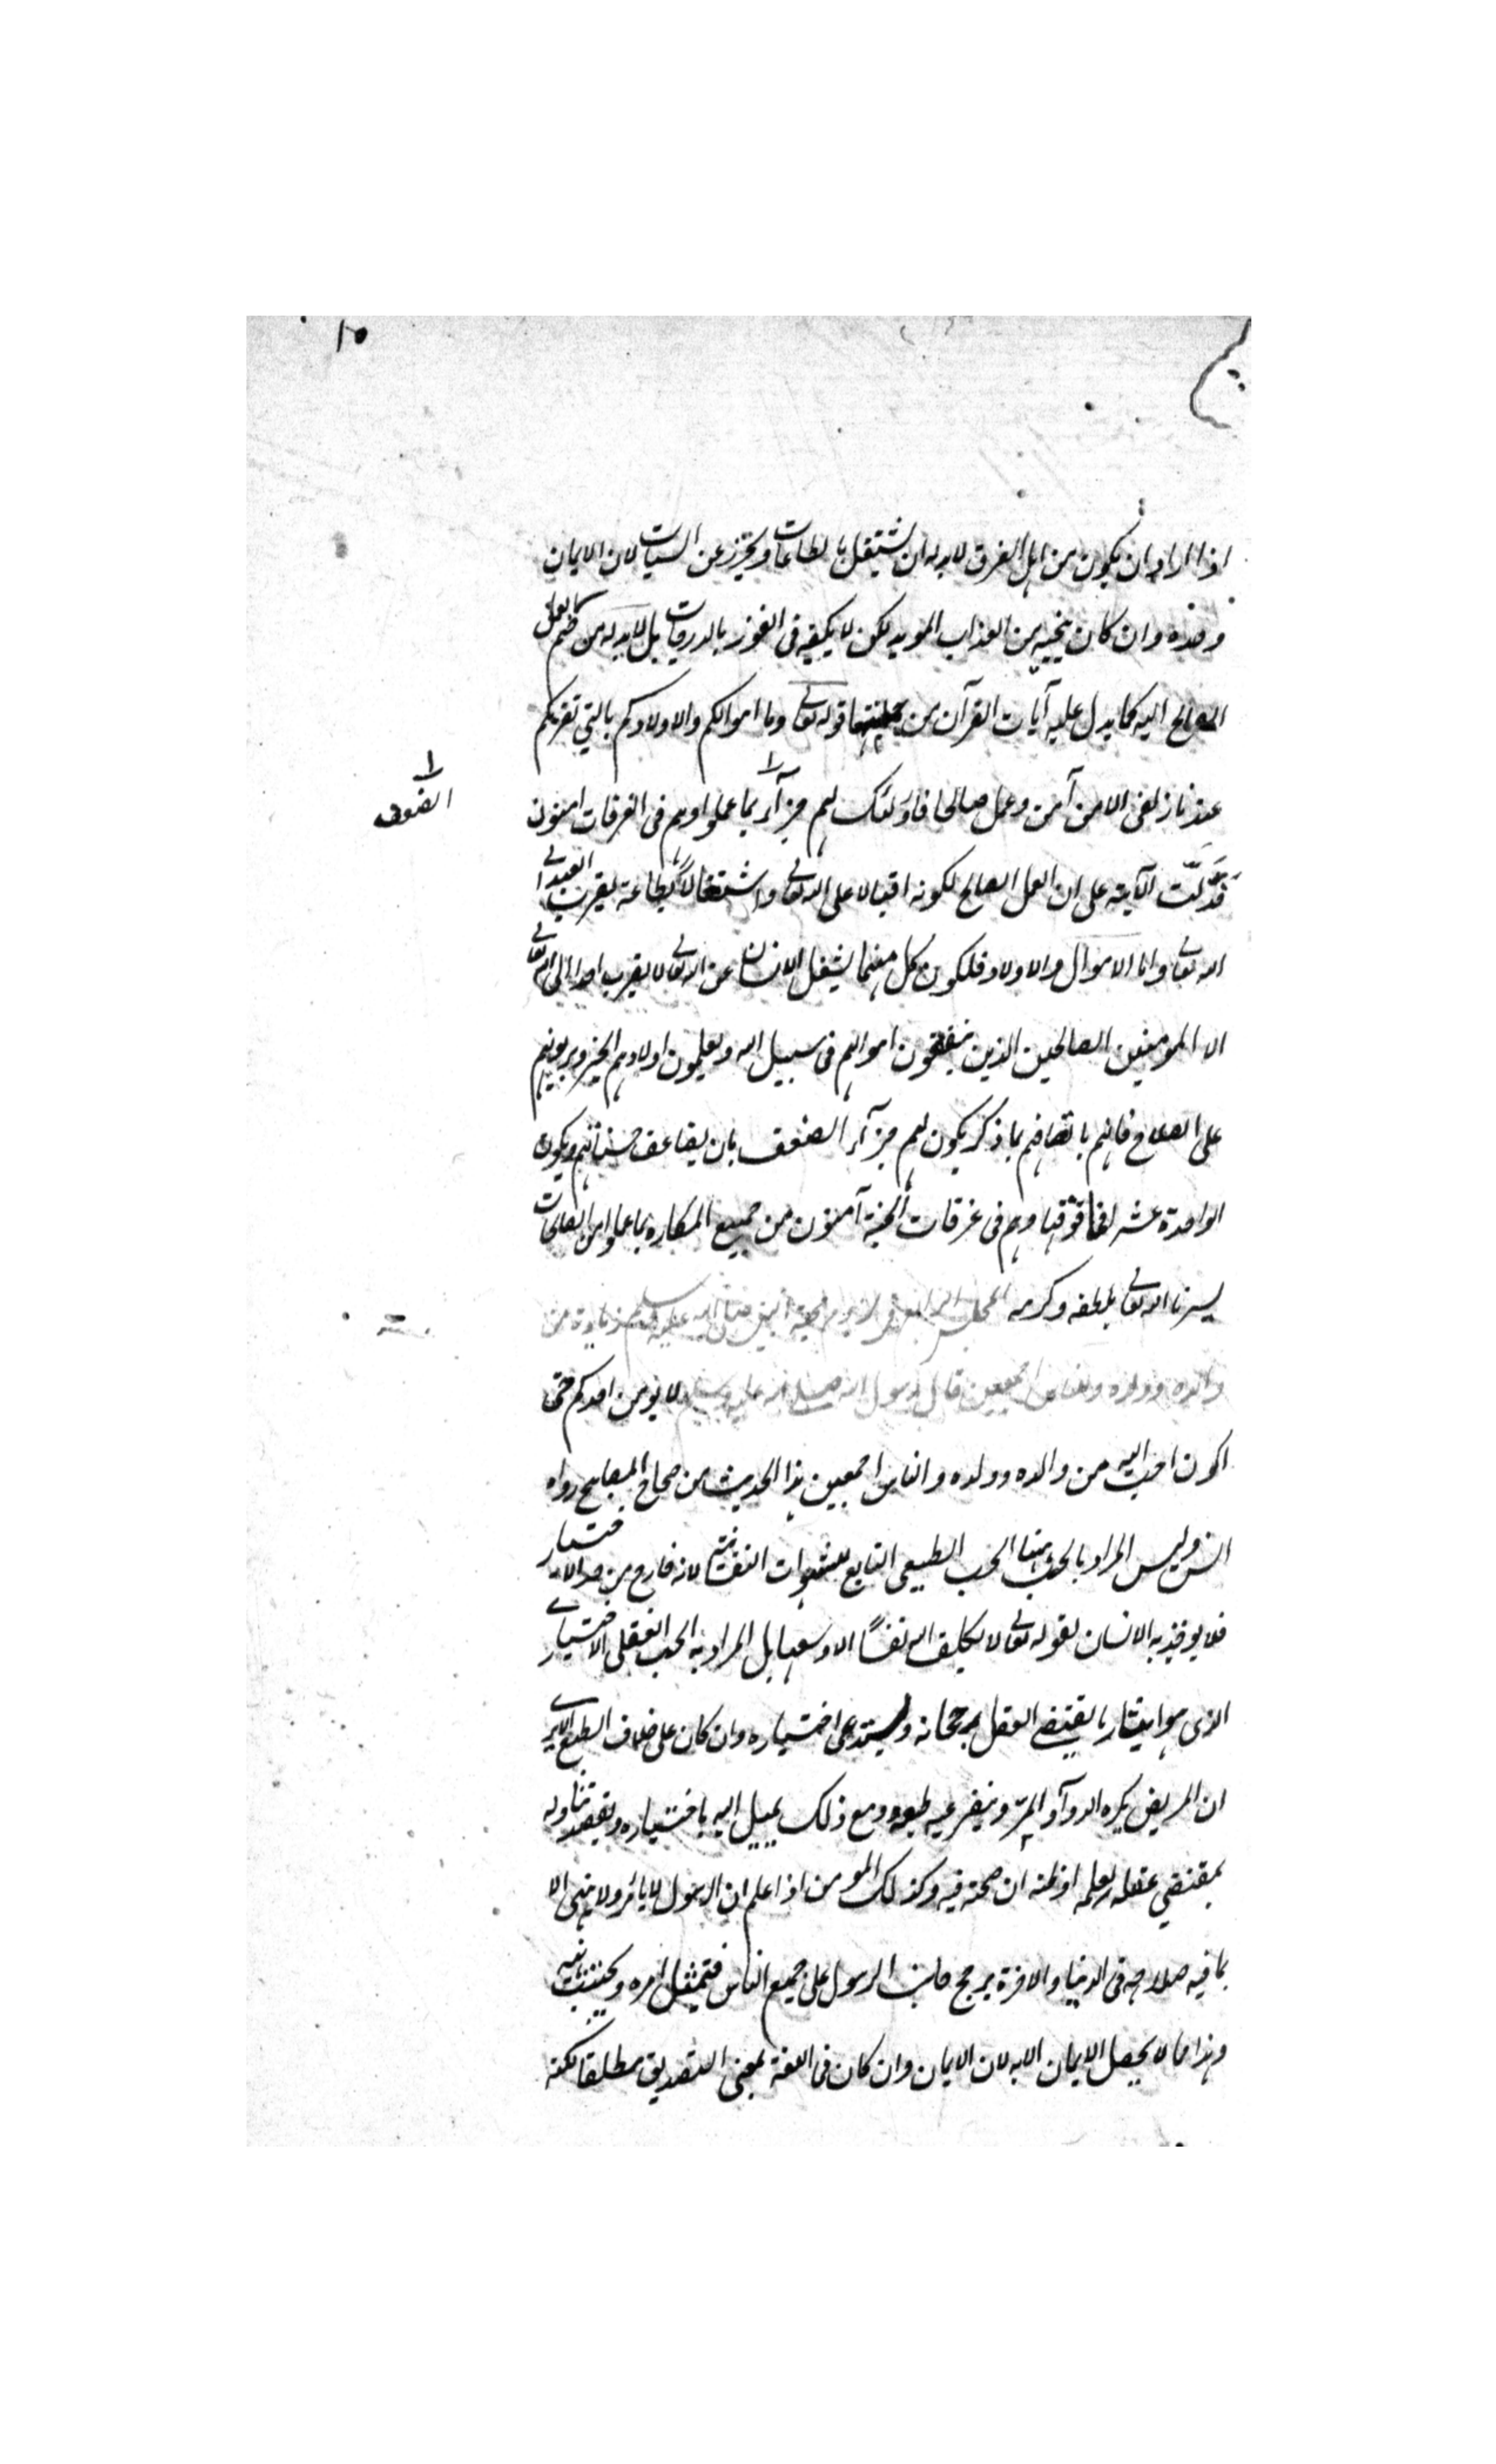 ١٥
اذا اراد ان يكون من اهل الغرف لا بد له ان يشتغل بالطاعات ويحترز عن السيات لان الايمان
وحده وان كان ينجيه من العذاب الموبد لكن لا يكفيه فى الفوز بالدرجات بل لا بد له من ضم العمل
الصالح اليه كما يدل عليه آيات القرآن من جملتها قوله تعالى وما اموالكم ولا اولادكم بالتي تقربكم
عندنا زلفى الا من آمن وعمل صالحا فاولئك لهم جزآء بما عملوا وهم فى الغرفات امنون
الضعف
فدلت الآية على ان العمل الصالح لكونه اقبالا على الله تعالى واشتغالا بطاعة يقرب العبد الى
الله تعالى واما الاموال والاولاد فلكون كل منهما يشغل الانسان عن الله تعالى لا يقرب احدا الى الله تعالى
الا المومنين الصالحين الذين ينفقون اموالهم فى سبيل الله ويعلمون اولادهم الخير ويربونهم
على الصلاح فانهم باتصافهم بما ذكر يكون لهم جزآء الضعف بان يضاعف حسناتهم ويكون
الواحدة عشر افما فوقها وهم فى غرفات الجنة آمنون من جميع المكاره بما عملوا من الصالحات
يسرنا الله تعالى بلطفه وكرمه المجلس الرابع فى لزوم محبة النبى صلى الله عليه وسلم زيادة من
والده وولده والناس اجمعين قال رسول الله صلى الله عليه وسلم لا يومن احدكم حتى
اكون احب اليه من والده وولده والناس اجمعين هذا الحديث من صحاح المصابيح رواه
انس وليس المراد بالحب هنا الحب الطبيعى التابع للشهوات النفسانية لانه خارج من حد الاختيار
فلا يوخذ به الانسان لقوله تعالى لا يكلف الله نفسًا الا وسعها بل المراد به الحب العقلى الاختيارى
الذى هو ايثار ما يقتضى العقل رجحانه ويستدعى اختياره وان كان على خلاف الطبع الا يرى
ان المريض يكره الدوآء المرّ وينفر عنه طبعه ومع ذلك يميل اليه باختياره ويقصد تناوله
بمقتضي عقله لعلمه او ظنه ان صحته فيه وكذلك المومن اذا علم ان الرسول لا يامر ولا ينهى الا
بما فيه صلاحه فى الدنيا والاخرة يرجح جانب الرسول على جميع الناس فيمتثل امره ويجتنب نهيه
وهذا مما لا يحصل الايمان الا به لان الايمان وان كان فى اللغة بمعنى التصديق مطلقا لكنه